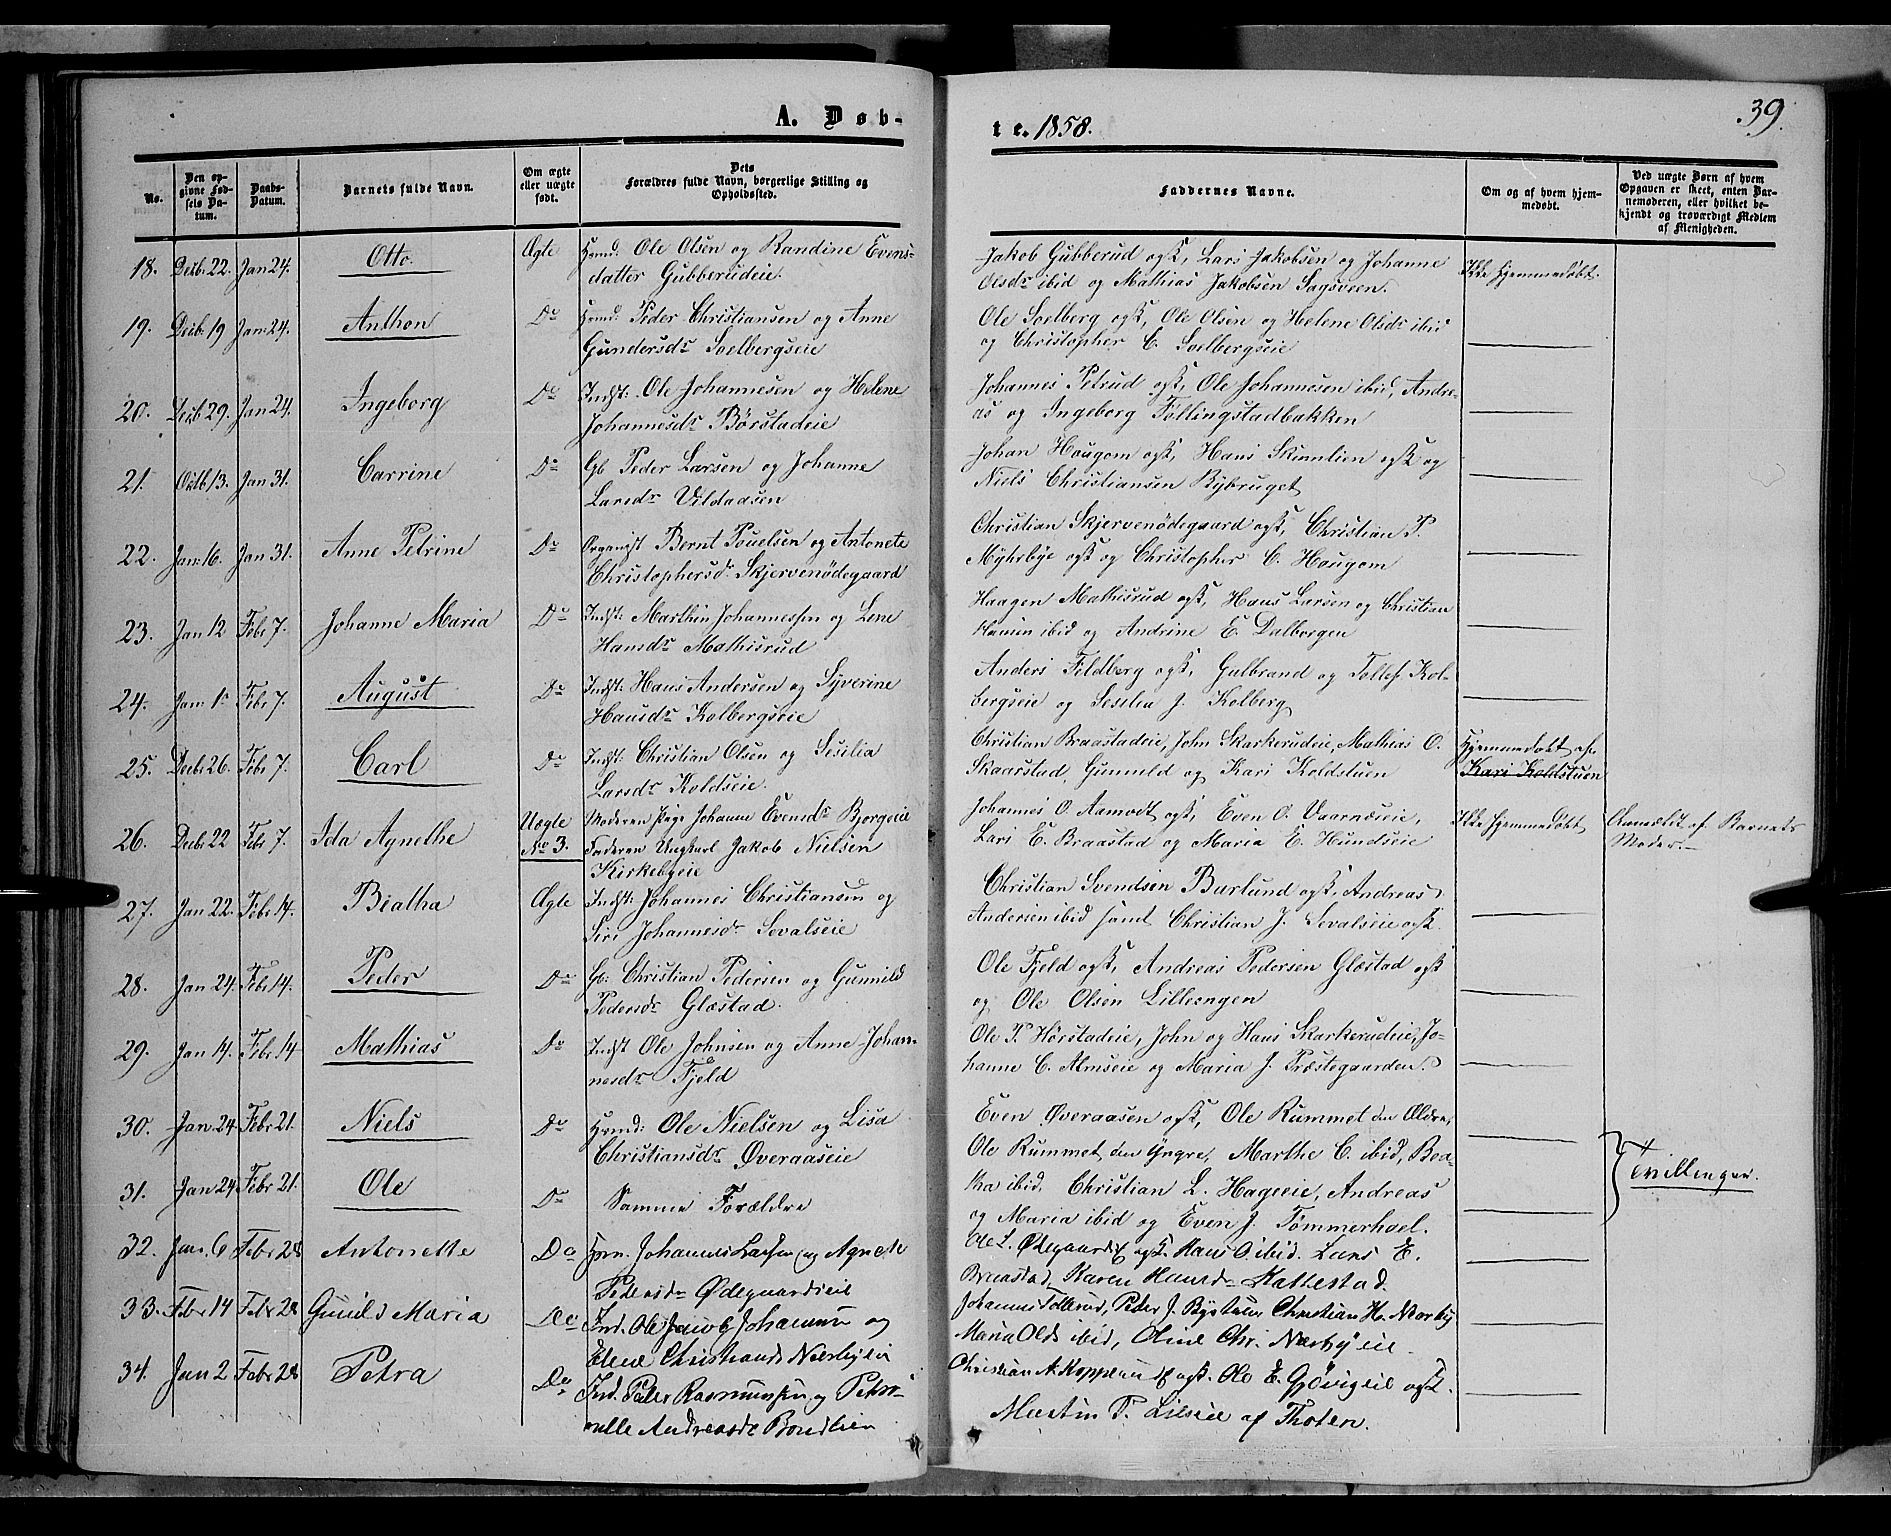 39.
A. Døb-
te. 1858.
No.
Den opgivne Fødsels Datum.
Daabs-Datum.
Barnets fulde Navn.
Om ægte eller uægte født.
Dets Forældres fulde Navn, borgerlige Stilling og Opholdssted.
Faddernes Navne.
Om og af hvem hjemmedøbt.
Ved uægte Børn af hvem Opgaven er skeet, enten Barnemoderen, eller hvilket bekjendt og troværdigt Medlem af Menigheden.
18. Decb. 22. Jan 24. Otto. Ægte Hsmd. Ole Olsen og Randine Evens-
datter Gubberudeie.
Jakob Gubberud ogK, Lars Jakobsen og Johanne
Olsdr ibid og Mathias Jakobsen Sagsveen.
Ikke hjemmedøbt.
19. Decb. 19 Jan 24. Anthon Do Hsmd. Peder Christiansen og Anne
Gundersdr Soelbergseie
Ole Soelberg ogK, Ole Olsen og Helene Olsdr ibid
og Christopher C. Soelbergseie
20. Decb 29. Jan 24. Ingeborg Do Indst: Ole Johannesen og Helene
Johannesdr Børstadeie
Johannes Petrud ogK, Ole Johannesen ibid, Andre-
as og Ingeborg Føllingstadbakken
21. Octb. 13. Jan 31. Carrine Do Gb Peder Larsen og Johanne
Larsdr Vildaasen
Johan Hougom ogK, Hans Skumlien ogK og
Niels Christiansen Rybruget
22. Jan. 16. Jan 31. Anne Petrine Do Organist Bernt Pouelsen og Antonete
Christophersdr Skjervenødegaard
Christian Skjervenødegaard ogK, Christian P.
Myhrbye ogK og Christopher C. Hougom
23. Jan 12. Febr 7. Johanne Maria Do Indst: Marthin Johannessen og Lene
Hansdr Mathisrud
Haagen Mathisrud ogK, Hans Larsen og Christian
Hansen ibid og Andrine E. Dalborgen
24. Jan. 1 Febr 7. August Do Indst: Hans Andersen og Syverine
Hansdr Kolbergseie
Anders Feldberg ogK, Gulbrand og Tollef Kol-
bergseie og Sesilia J. Kolberg
25. Decbr 26. Febr 7. Carl Do Indst: Christian Olsen og Sesilia
Larsdr Koldseie.
Christian Braastadeie, John Skarkerudeie, Mathias O.
Skaarstad, Gunnild og Kari Koldstuen
Hjemmedøbt af
Kari Koldstuen
26. Decbr 22 Febr 7. Ida Agnethe Uægte No 3. Moderen Pige Johanne Evensdr Bjørgeie
Faderen Ungkarl Jakob Nielsen
Kirkebyeie
Johannes O. Aamodt ogK, Even O. Vaarnæseie,
Lars E. Braastad og Maria E. Hundseie
Ikke hjemmedøbt
Anmeldt af Barnets
Moder.
27. Jan 22. Febr 14. Beatha Ægte Indst: Johannes Christiansen og
Siri Johannesdr Sovalseie
Christian Svendsen Burlund ogK. Andreas
Andersen ibid samt Christian J. Sovalseie ogK.
28. Jan 24. Febr 14. Peder Do Gb: Christian Pedersen og Gunnild
Pedersdr Glæstad.
Ole Fjeld ogK, Andreas Pedersen Glæstad ogK
og Ole Olsen Lilleengen
29. Jan 14. Febr 14 Mathias Do Indst Ole Johnsen og Anne Johan-
nesdr Fjeld
Ole P. Hørstadeie, John og Hans Skarkerudeie, Jo-
hanne C. Almseie og Maria J. Præstegaarden.
30. Jan. 24. Febr 21. Niels Do Hsmd: Ole Nielsen og Lisa
Christiansdr Øveraaseie
Even Øveraasen ogK, Ole Rummet den Ældre,
Ole Rummet den Yngre, Marthe C. ibid, Bea-
31. Jan 24 Febr 21. Ole Do Samme Forældre
tha ibid, Christian L. Hageeie, Andreas
og Maria ibid og Even J. Tømmerhoel.
Tvillinger.
32. Jan. 6 Febr 28 Antonette Do Hsm. Johannes Larsen og Agnete
Pedersdr Ødegaardseie
Ole L. Ødegaard ogK. Hans O ibid. Lars E.
Braastad, Karen Hansdr Kattestad.
33. Febr 14 Febr 28 Gunild Maria Do Ind. Ole Jacob Johannesen og
Elene Christiansdr Nærbyeie
Johannes Tollerud, Peder J. Bystuen Christian H. Nærby
Maria Olsdr ibid, Oline Chr. Nærbyeie.
34. Jan 2 Febr 28 Petra Do Ind. Peder Rasmussen og Petro-
nelle Andreasdr Bondlien
Christian A. Kopperud ogK. Ole E. Gjøvigeie ogK.
Martin P. Lilleeie af Thoten.